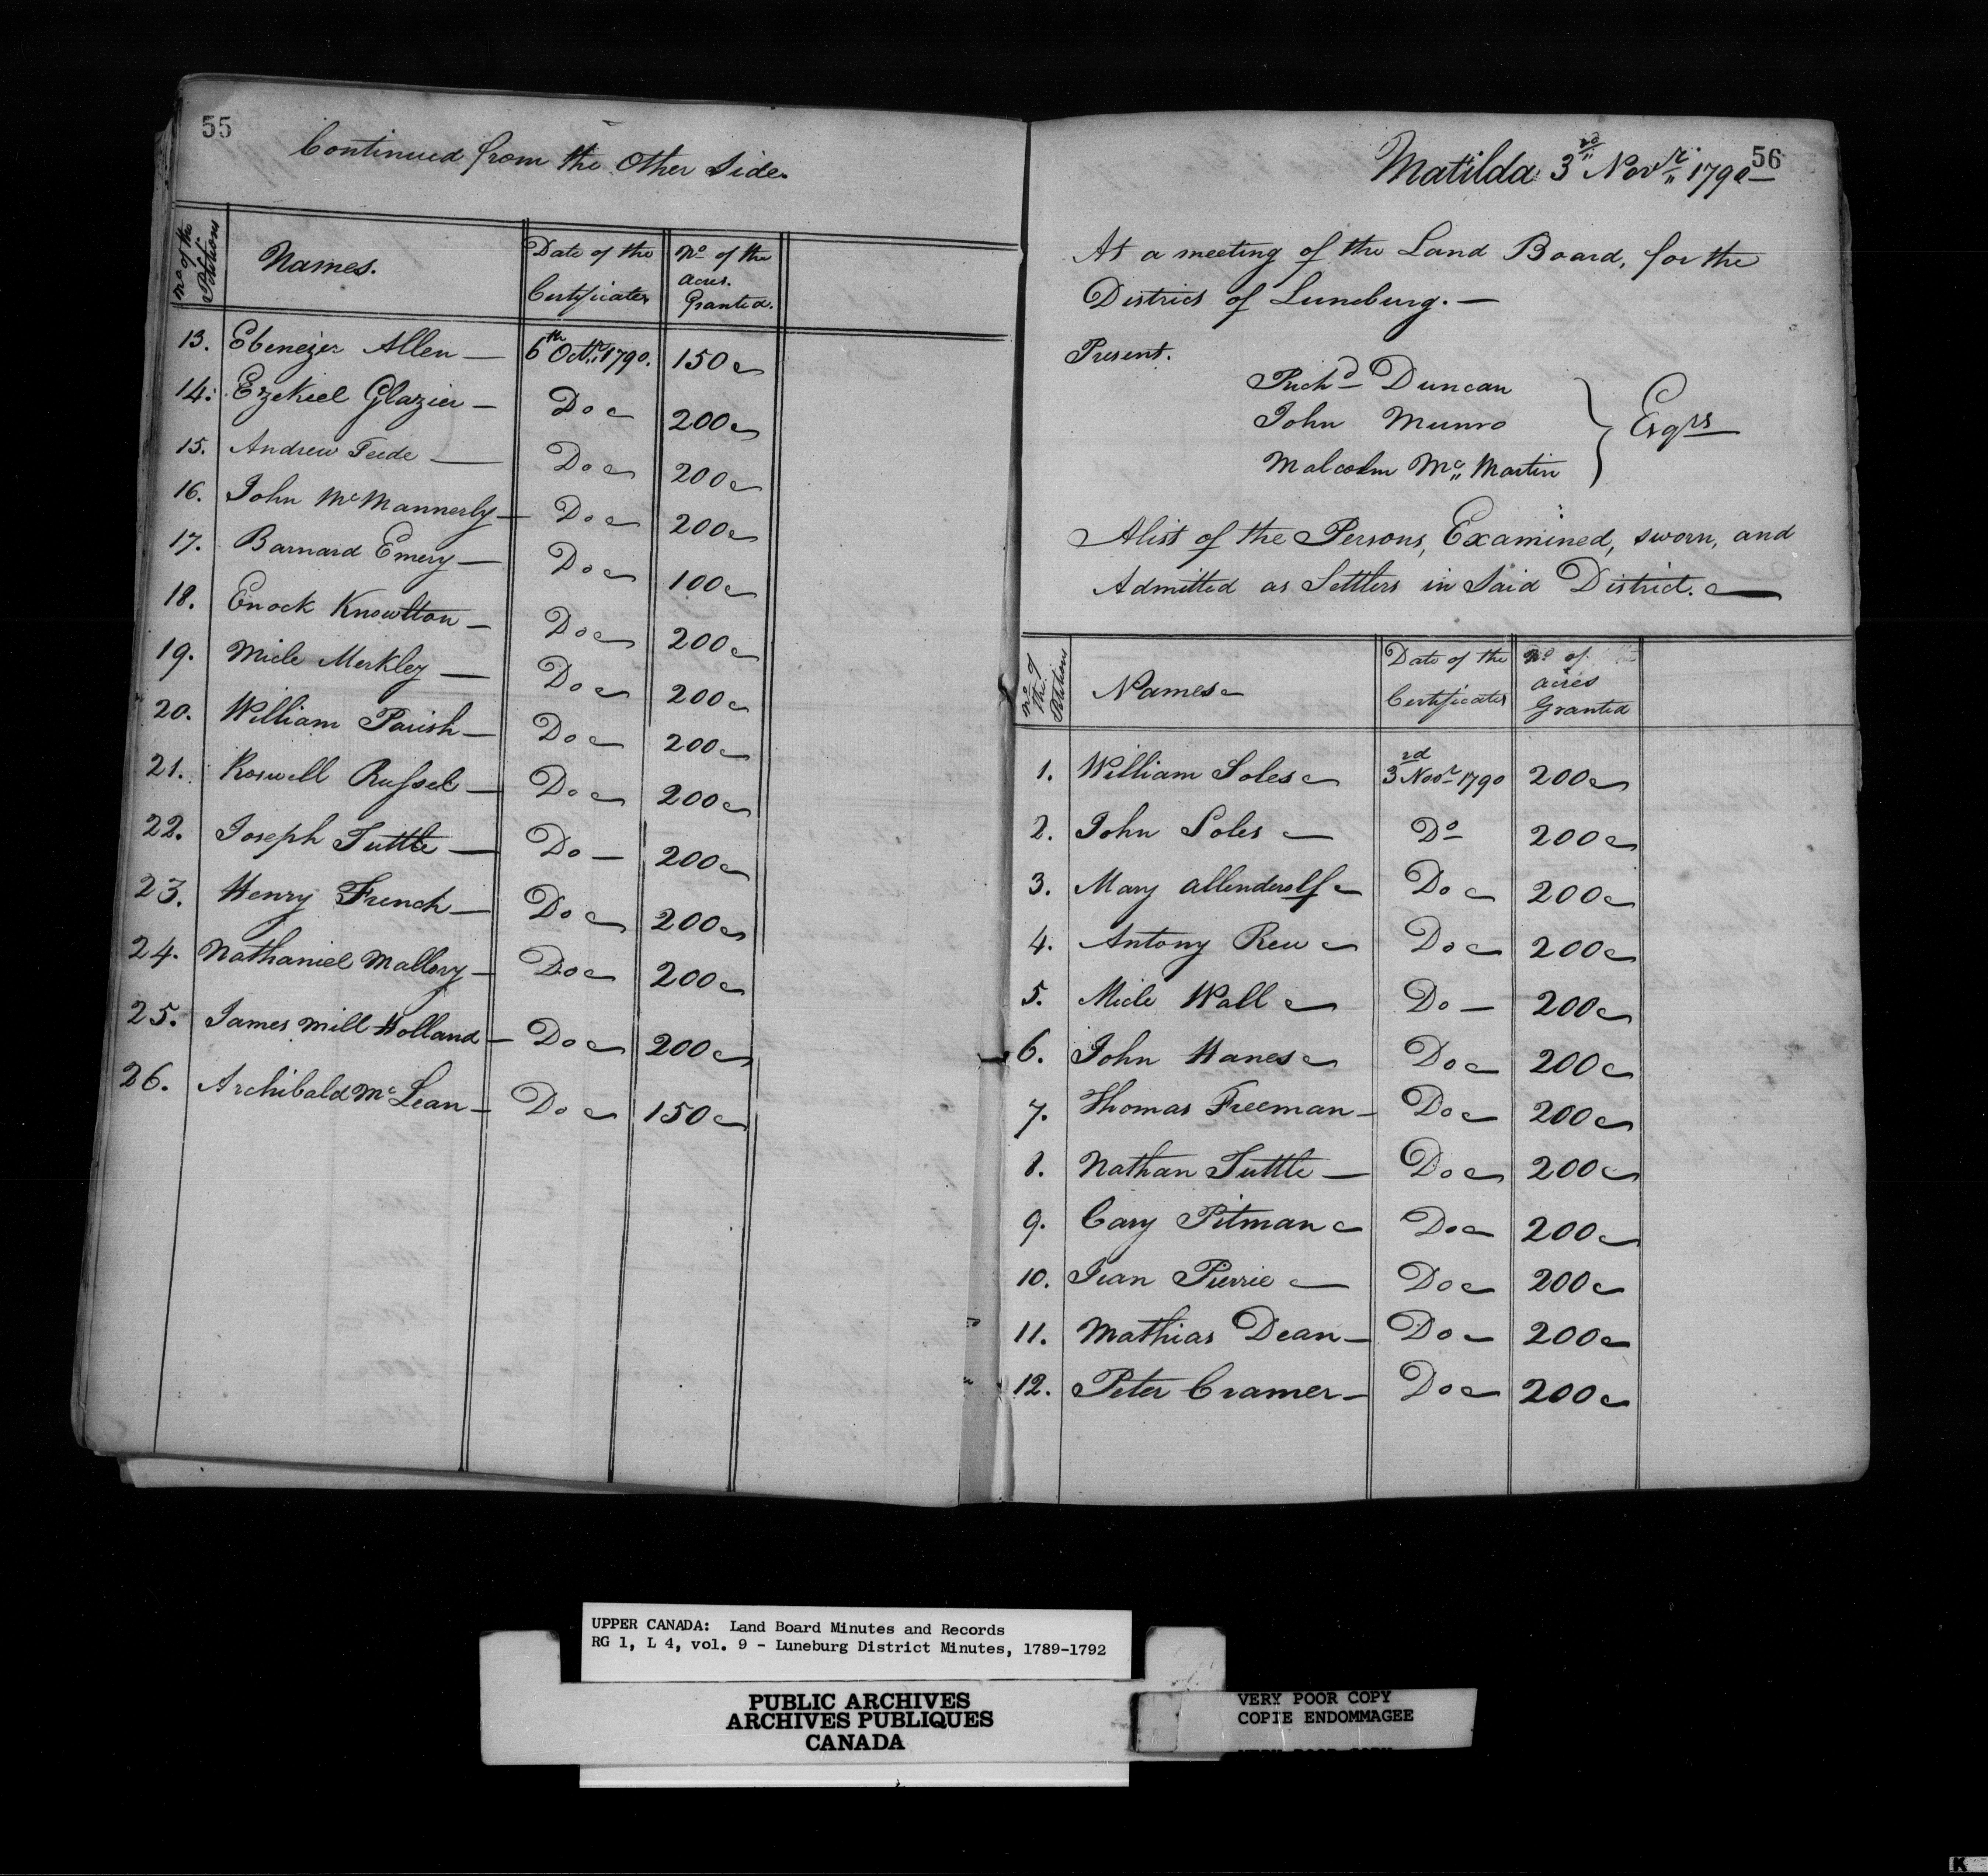 55
Continued from the Other Side.
No. of the Petitions | Names. | Date of the Certificates | No. of the acres. Granted.
13. Ebenezer Allen — 6th Octr. 1790. 150
14. Ezekiel Glazier — Do 200
15. Andrew Teede — Do 200
16. John McMannerly — Do 200
17. Barnard Emery — Do 100
18. Enock Knowlton — Do 200
19. Micle Merkley — Do 200
20. William Parish — Do 200
21. Roswell Russel — Do 200
22. Joseph Tuttle — Do — 200
23. Henry French — Do 200
24. Nathaniel Mallory — Do 200
25. James Mill Holland — Do 200
26. Archibald McLean — Do 150
56
Matilda 3rd Novr. 1790 —
At a meeting of the Land Board, for the
District of Luneburg. —
Present.
Richd Duncan
John Munro
Malcolm Mc Martin
} Esqrs
A list of the Persons, Examined, sworn, and
Admitted as Settlers in Said District.
No. of the Petitions | Names | Date of the Certificates | No. of acres Granted
1. William Soles 3rd Novr 1790 200
2. John Soles — Do 200
3. Mary Allenderolf Do 200
4. Antony Rew Do 200
5. Micle Wall Do — 200
6. John Hanes Do 200
7. Thomas Freeman — Do 200
8. Nathan Tuttle — Do 200
9. Cary Pitman Do 200
10. Jean Pierrie Do 200
11. Mathias Dean — Do — 200
12. Peter Cramer — Do 200
UPPER CANADA: Land Board Minutes and Records
RG 1, L 4, vol. 9 - Luneburg District Minutes, 1789-1792
PUBLIC ARCHIVES
ARCHIVES PUBLIQUES
CANADA
VERY POOR COPY
COPIE ENDOMMAGEE